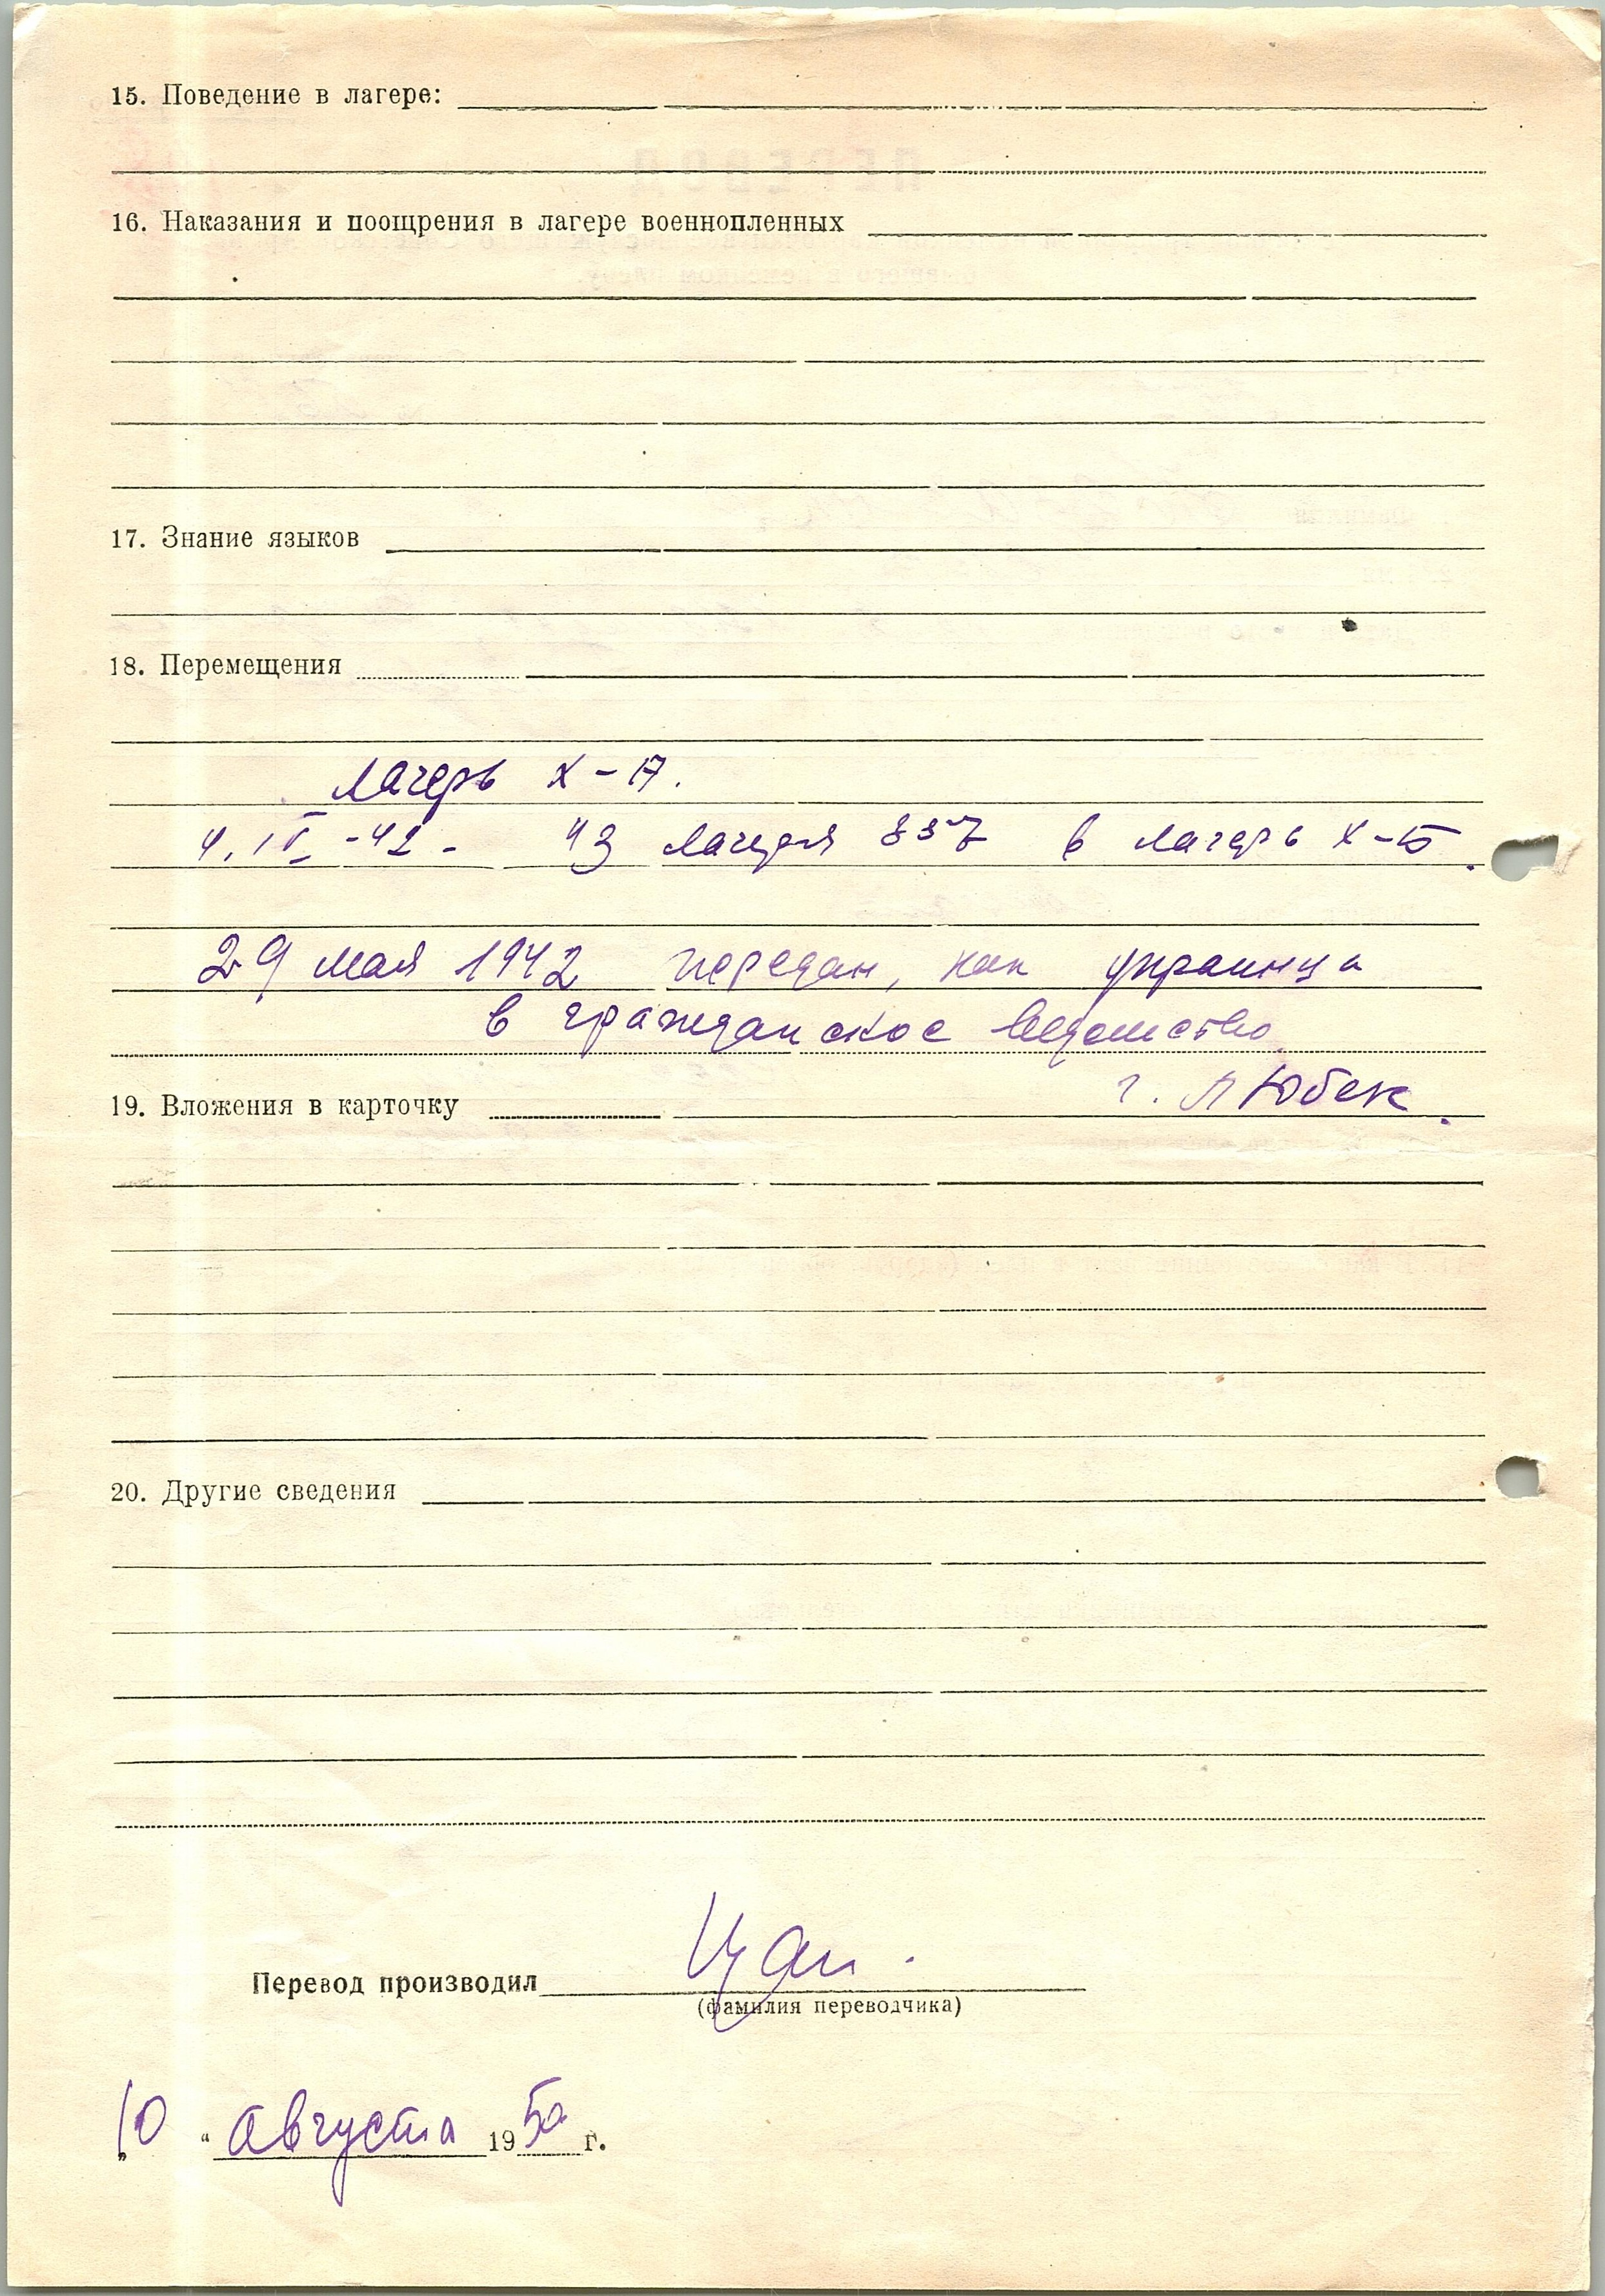 15. Поведение в лагере:
16. Наказания и поощрения в лагере военнопленных
17. Знание языков
18. Перемещения
лагерь X-А.
4. IV -42 - из лагеря 357 в лагерь X-Б.
29 мая 1942 передан, как украинца
в гражданское ведомство
г. Любек.
19. Вложения в карточку
20. Другие сведения
Перевод производил
(фамилия переводчика)
„10 “ августа 1950 г.